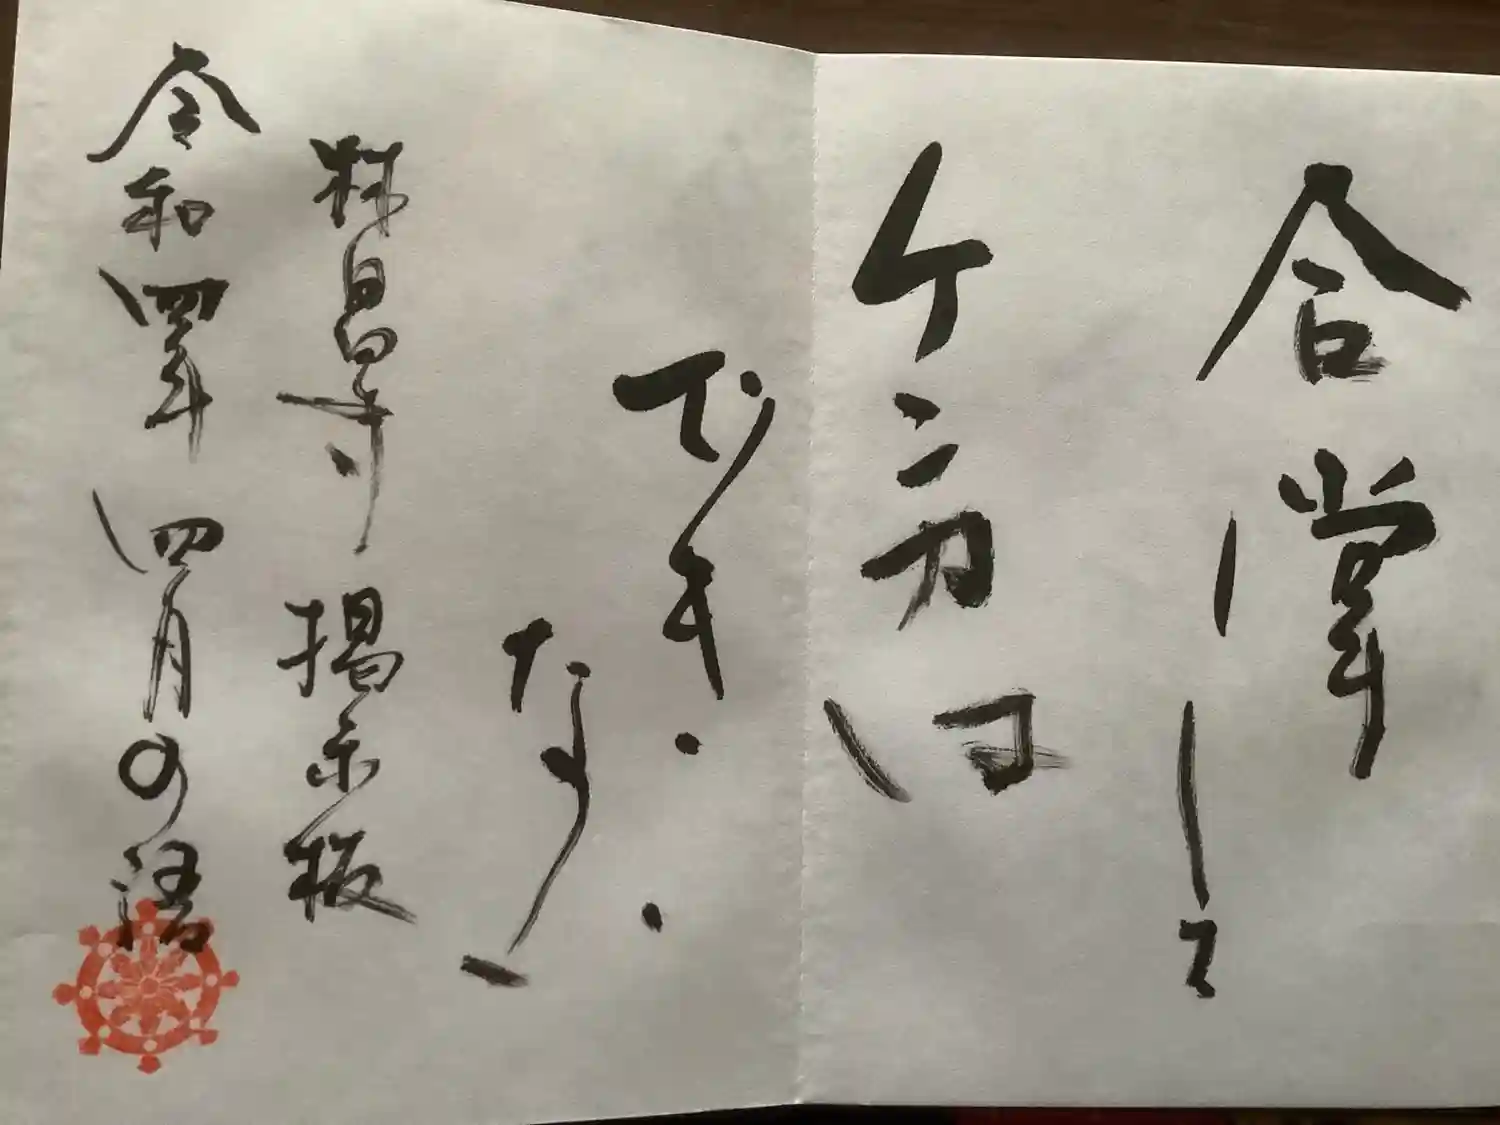 合掌
して
ケンカは
でき
ない
林昌寺 掲示板
令和四年 四月の語